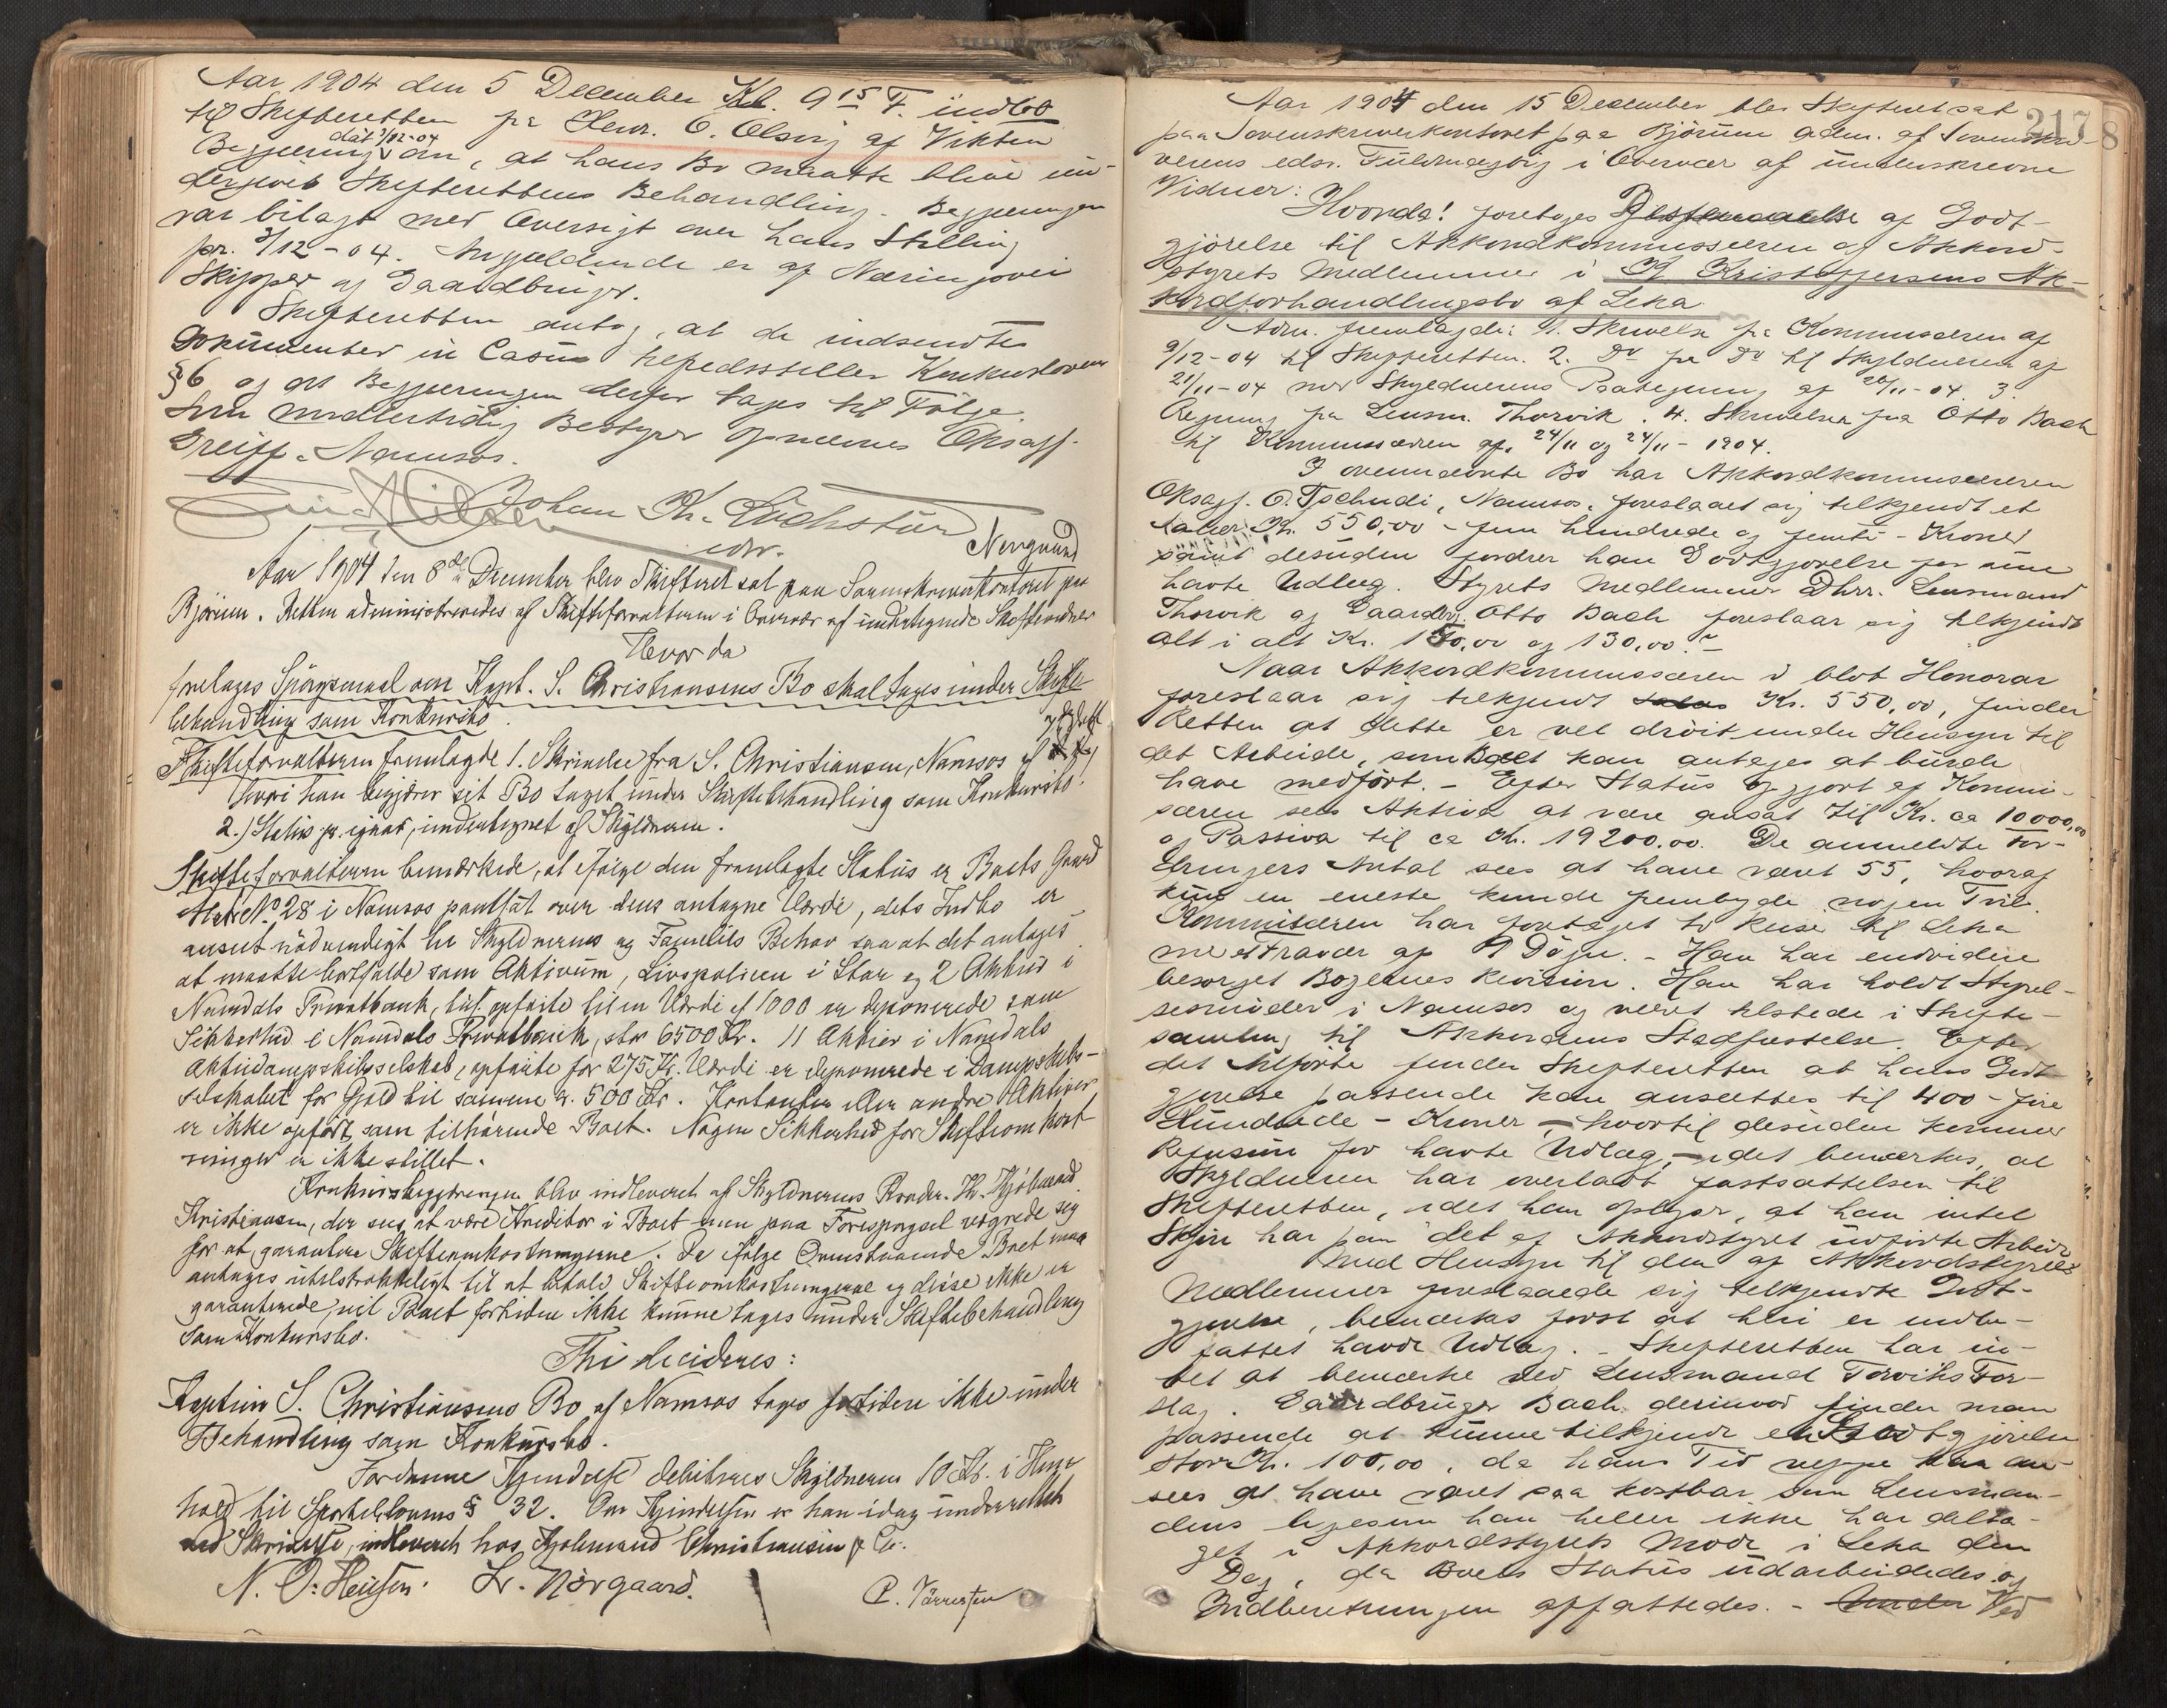 Aar 1904 den 5 December Kl. 9 15 F. indkom
til Skifteretten fra Henr. O. Olsen af Vikten
dat 3/12-04
Begjæring om, at hans Bo maatte blive un-
dergivet Skifterettens Behandling. Begjæringen
var bilagt med Oversigt over hans Stilling
pr. 3/12-04. Angjældende er af Næringsvei
Skipper og Gaardbruger.
Skifteretten antog, at de indsendte
Dokumenter in Casu tilfredsstiller Konkursloven
§ 6 og at Begjæringen derfor tages til Følge.
Som midlertidig Bestyrer opnævnes Oksagf.
Greiff, Namsos.
Johan Kr.
edsv.
Aar 1904 den 8de December blev Skifteret sat paa Sorenskriverkontoret paa
Bjørum. Retten administreredes af Skifteforvalteren i Overvær af undertegnede Skiftevidner
Hvorda
foretages Spørgsmaal om Kapt. S. Christiansens Bo skal tages under Skifte-
behandling som Konkursbo.
Skifteforvalteren fremlagde 1. Skrivelse fra S. Christiansen, Namsos af
hvori han begjærer sit Bo taget under Skiftebehandling som Konkursbo.
2.) Status pr. igaar, undertegnet af Skyldneren.
Skifteforvalteren bemærkede, at ifølge den fremlagte Status er Boets Gaard
Matr No 28 i Namsos pantsat over dens antagne Værdi, dets Indbo er
anseet nødvendigt for Skyldnerens og Families Behov saa at det antages
at maatte bortfalde som Aktivum, Livspolicen i Star og 2 Aktier i
Namdals Privatbank, opførte til en Værdi af 1000 er deponerede som
Sikkerhed i Namdals Privatbank, stor 6500 Kr. 11 Aktier i Namdals
Aktiedampskibsselskab, opførte for 275 Kr. Værdi er deponerede i Dampskibs-
selskabet for Gjæld til samme 500 Kr. Kontanter eller andre Aktiver
er ikke opført som tilhørende Boet. Nogen Sikkerhed for Skifteomkost-
ninger er ikke stillet.
Konkursbegjæringen blev indleveret af Skyldnerens Broder Kjøbmand
Kristiansen, der sees at være Kreditor i Boet men paa Forespørgsel vægrede sig
for at garantere Skifteomkostningerne. Da ifølge Ovenstaaende Boet maa
antages utilstrækkeligt til at betale Skifteomkostningerne og disse ikke er
garanterede, vil Boet fortiden ikke kunne tages under Skiftebehandling
som Konkursbo.
Thi decideres:
Kaptein S. Christiansens Bo af Namsos tages fortiden ikke under
Behandling som Konkursbo.
For denne Kjendelse debiteres Skyldneren 10 Kr. i Hen-
hold til Sportellovens § 32. Om Kjendelsen er han idag underrettet
ved Skrivelse, indleveret hos Kjøbmand Christiansen
N. O. Heilsen. Lr. Nørgaard.
217 8
Aar 1904 den 15 December blev Skifteret sat
paa Sorenskriverkontoret paa Bjørum adm. af Sorenskri-
verens edsv. Fuldmægtig i Overvær af underskrevne
Vidner:
Hvorda! foretoges af Godt-
gjørelse til Akkordkommissæren og Akkord-
styrets Medlemmer i Kristoffersens Ak-
kordforhandlingsbo af Leka
Adm. fremlagde: 1. Skrivelse fra Kommissæren af
9/12-04 til Skifteretten. 2. Do fra Do til Skyldneren af
21/11-04 med Skyldnerens Paategning af 28/11-04. 3.
Regning fra Lensm. Thorvik. 4. Skrivelser fra Otto Bach
til Kommissæren af 24/11 og 24/11-1904.
I ovennævnte Bo har Akkordkommissæren
Oksagf. O. Tschudi, Namsos, foreslaaet sig tilkjendt et
Salær Kr. 550,00 - fem hundrede og femti - Kroner
samt desuden fordrer han Godtgjørelse for sine
havte Udlæg. Styrets Medlemmer Dhrr. Lensmand
Thorvik og Gaardbr. Otto Bach foreslaar sig tilkjendt
alt i alt Kr. 150,00 og 130,00.
Naar Akkordkommissæren i blot Honorar
foreslaar sig tilkjendt Kr. 550,00, finder
Retten at dette er vel drøit under Hensyn til
det Arbeide, som Boet kan antages at burde
have medført. - Efter Status opgjort af Kommis-
særen sees Aktiva at være ansat til Kr. ca 10000,00
og Passiva til ca Kr. 19200.00. De anmeldte For-
dringers Antal sees at have været 55, hvoraf
kun en eneste kunde frembyde nogen Tvil.
Kommissæren har foretaget to Reiser til Leka
med Fravær af 9 Døgn. - Han har endvidere
besørget Bøgernes Revision. Han har holdt Styrel-
sesmøder i Namsos og været tilstede i Skifte-
samling til Akkordens Stadfæstelse. Efter
det Anførte finder Skifteretten at hans Godt-
gjørelse passende kan ansættes til 400 - fire
Hundrede - Kroner, - hvortil desuden kommer
Refusion for havte Udlæg, - idet bemærkes, at
Skyldneren har overladt fastsættelsen til
Skifteretten, idet han oplyser, at han intet
Skjøn har paa det af Akkordstyret udførte Arbeide
Med Hensyn til den af Akkordstyrets
Medlemmer foreslaaede sig tilkjendte Godt-
gjørelse, bemærkes først at heri er indbe-
fattet havde Udlæg. - Skifteretten har in-
tet at bemærke ved Lensmand Torviks For-
slag. Gaardbruger Bach derimod finder man
passende at kunne tilkjende en Godtgjørelse
stor Kr. 100,00, da hans Tid neppe kan an-
sees at have været saa kostbar som Lensman-
dens ligesom han heller ikke har delta-
get i Akkordstyrets Møde i Leka den
Dag, da Boets Status udarbeidedes og
Indberetningen affattedes. - Ved